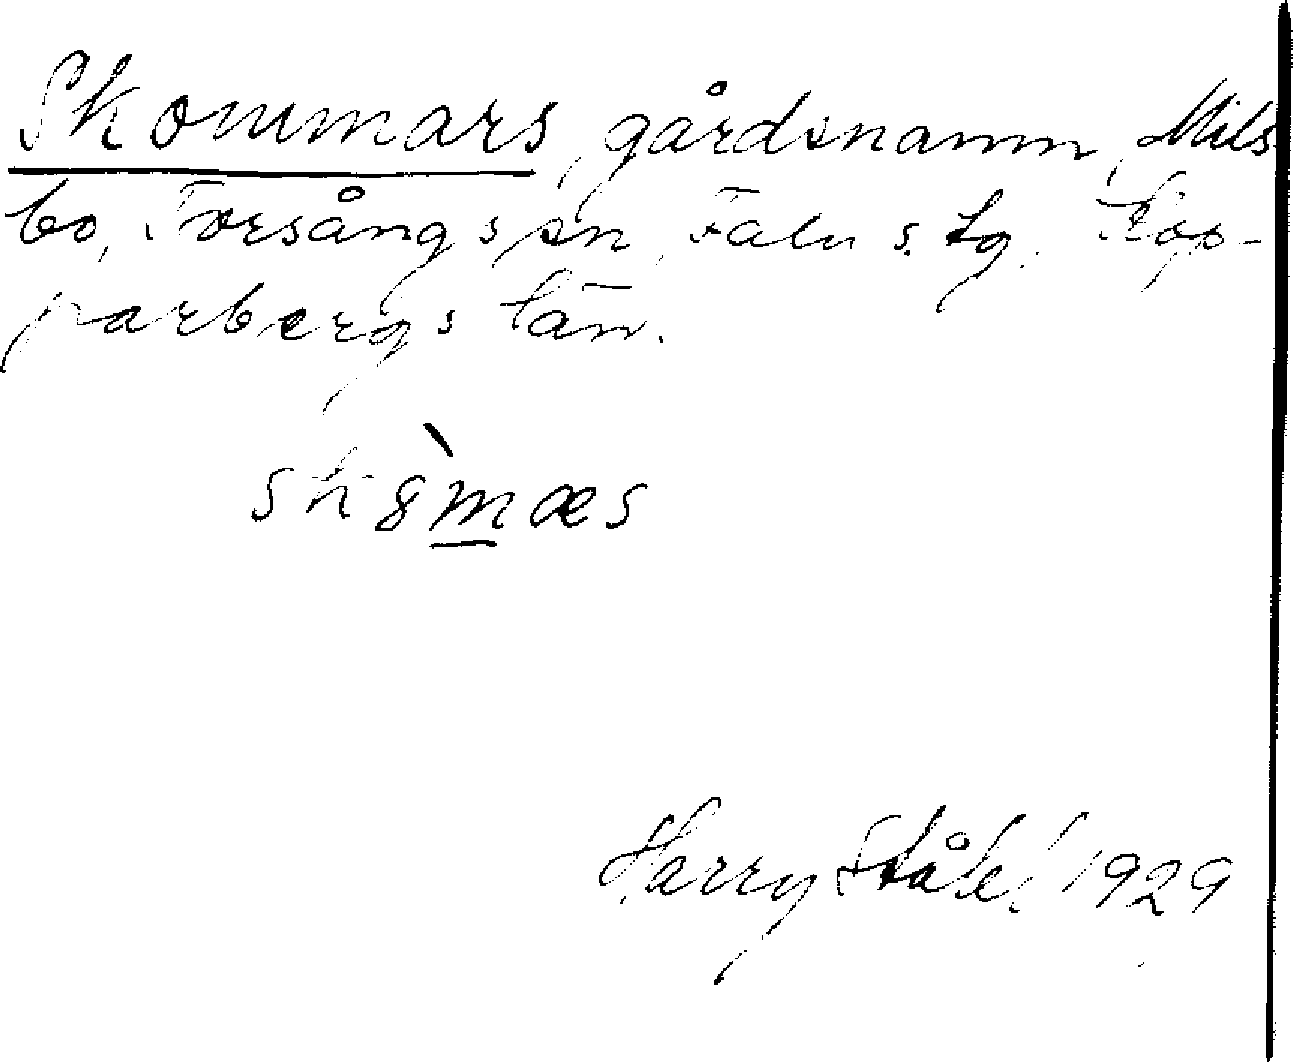 Skommars, gårdsnamn, Mils
bo, Torsångs sn, Falu s. tg. Kop-
parbergs län.
sk8̀m̲æs
Harry Ståhl 1929